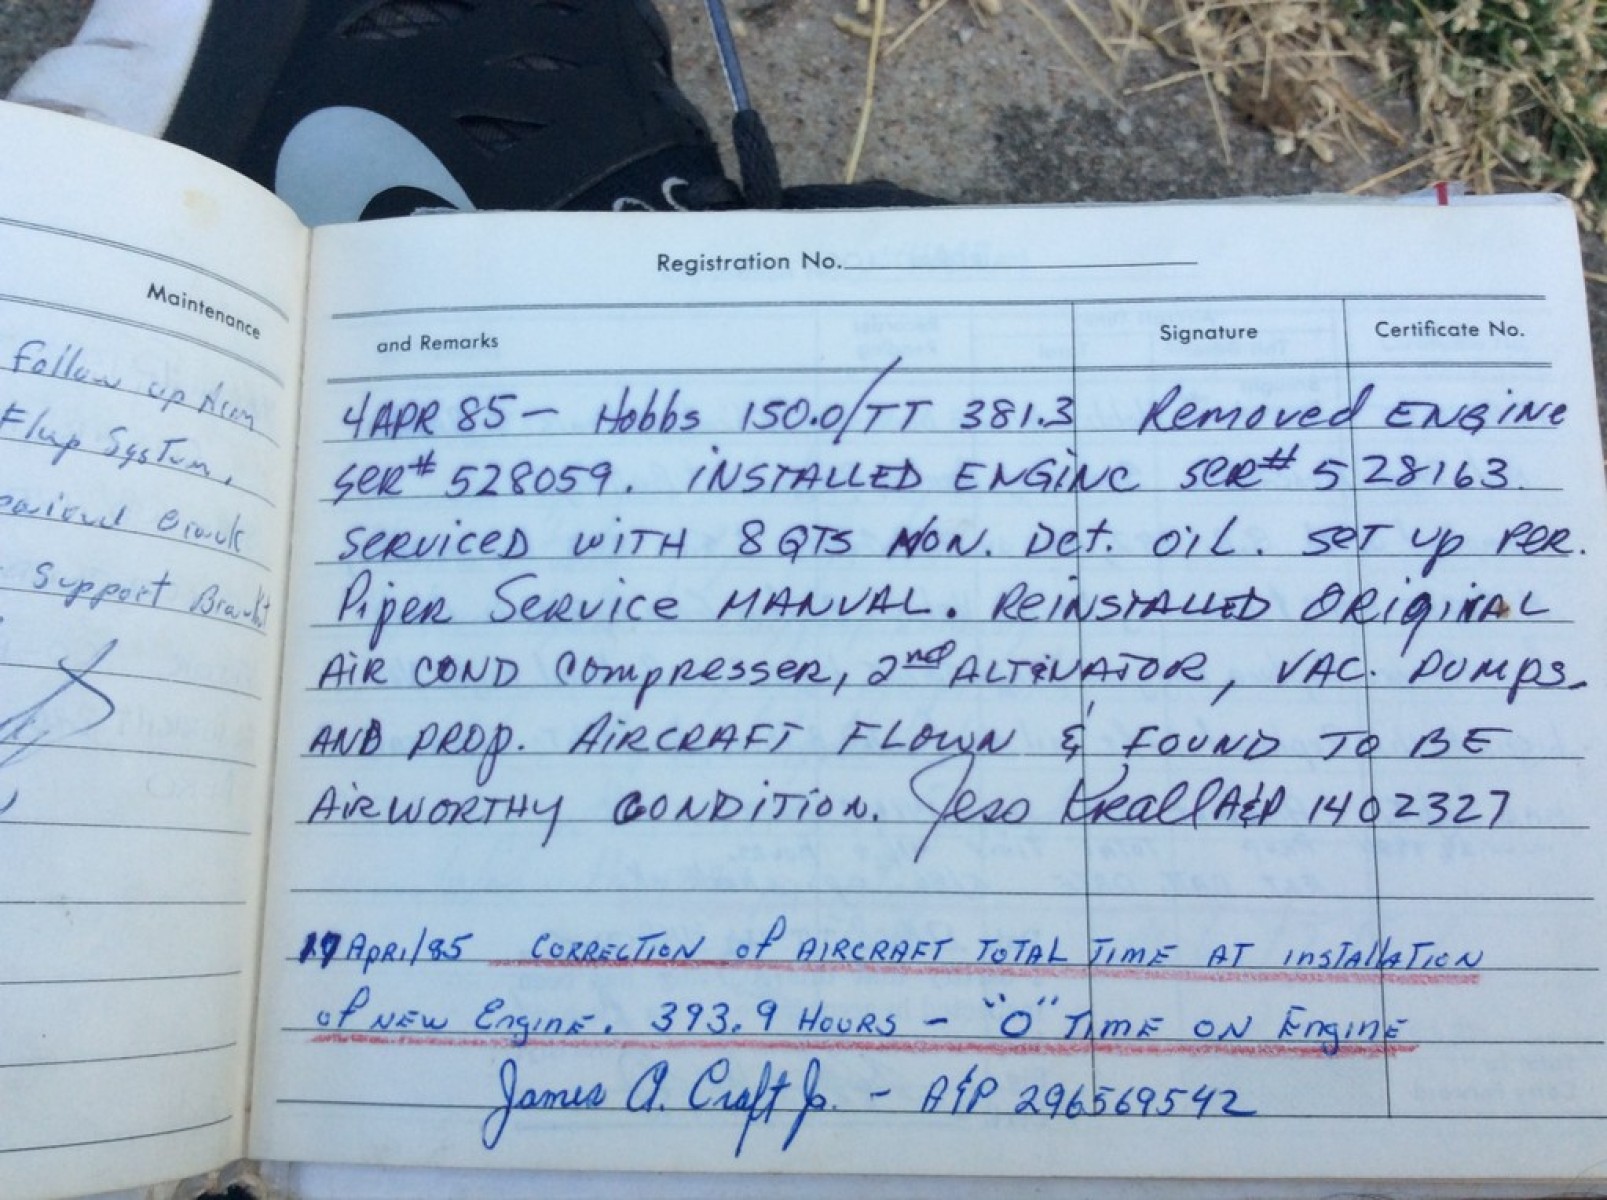 Maintenance
Follow up
Flap System,
Support
Registration No.
and Remarks Signature Certificate No.
4 APR 85 — Hobbs 150.0/TT 381.3 Removed ENGINE
SER# 528059. INSTALLED ENGINE SER# 528163.
SERVICED WITH 8 QTS NON. Det. OIL. SET UP PER.
Piper SERVICE MANUAL. REINSTALLED ORIGINAL
AIR COND COMPRESSER, 2nd ALTENATOR, VAC. PUMPS,
AND PROP. AIRCRAFT FLOWN & FOUND TO BE
AIRWORTHY CONDITION. Jess Krall A&P 1402327
17 April/85 CORRECTION of AIRCRAFT TOTAL TIME AT installATION
of NEW Engine. 393.9 HOURS — "O" TIME ON Engine
James A. Craft Jr. - A&P 296569542